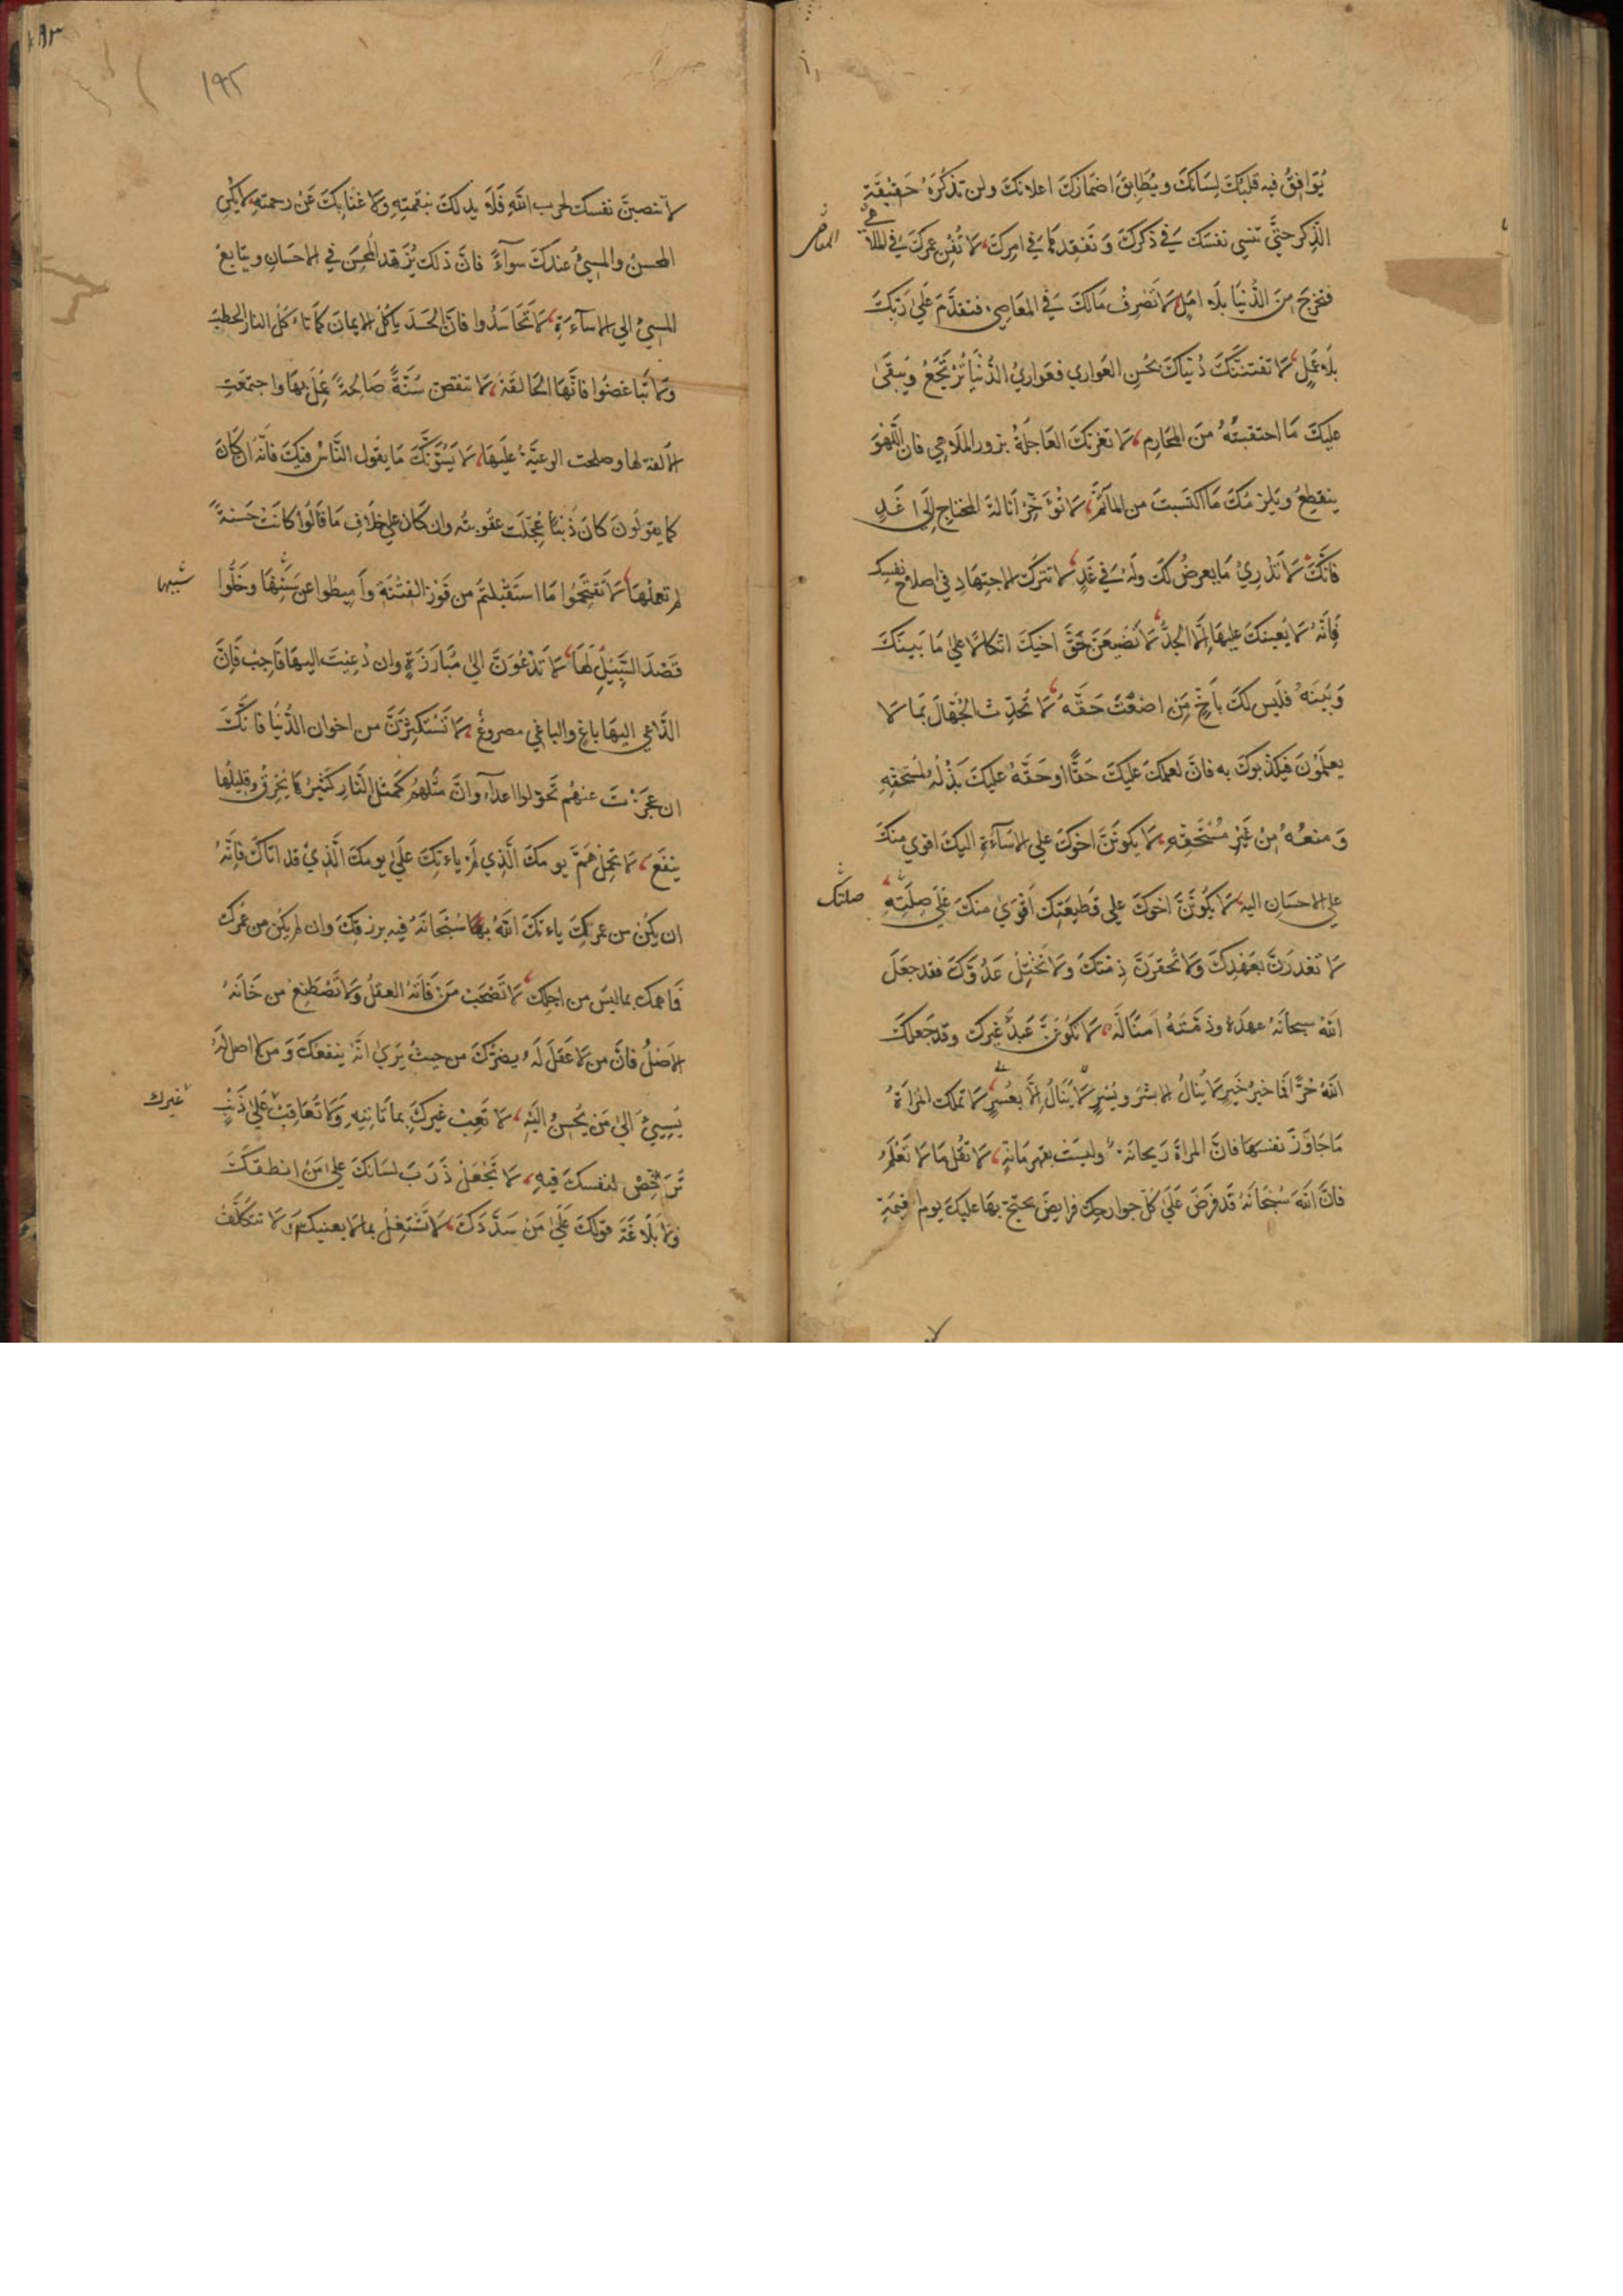 يُوَافِقُ فيه قلبُكَ لِسَانَكَ ويُطَابِقَ اضمَارُكَ اعلانَكَ ولن تذكُرَهُ حَقيقَةِ
الذِّكرِ حتَّي تنسِي نفسَكَ فِي ذكركَ وَتفقِدهَا فِي امرِكَ، لَا تُفنِ عمرَكَ فِي الملا هِي
المعاصي
فتخرُجَ مِنَ الدُّنيَا بِلَا امَلٍ، لَا تَصْرِفْ مَالَكَ فِي المعَاصِي، فتقدَمَ عَلَي رَبّكَ
بِلَا عَمَلٍ، لَا تفتننَّكَ دُنياكَ بحُسنِ العَوَاري فعَوَاريُ الدُّنْيَا تُرْتَجَعُ وَيَبقَى
عَليكَ مَا احتقبتَهُ منَ المَحَارِمِ، لَا تغرنَّكَ العَاجِلَةُ بزورِ المَلَاهِي فان اللَّهْوَ
ينقطِعُ ويَلزَمُكَ مَا اكتسَبتَ من المَآثمِ، لَا تُؤَخِّرْ انَالةَ المُحْتَاجِ إِلَى غَدٍ
فَانَّكَ لَا تَدْرِيْ مَا يعرضُ لَكَ ولَهُ فِي غَدٍ، لَا تترُكِ الاجتهَادِ فِي اصلاحِ نفسِكَ
فَاِنَّهُ لَا يُعينكَ عليهَا إِلَّا الجِدُّ، لَا تُضيعَنَّ حَقَّ اخيكَ اتّكالًا عَلي مَا بَينَكَ
وَبَيْنَهُ فلَيسَ لكَ باَخٍ مَن اضَعْتَ حَقَّهُ، لَا تُحَدِّثِ الجُهَّالَ بمَا لَا
يعلَمُونَ فيكذبوكَ به فانَّ لعِلمِكَ عَليكَ حَقًّا وحَقّهُ عليكَ بَذْلُهُ لمُستَحقّهِ
وَمنعُهُ مِنْ غَيْرِ مُسْتَحِقّهِ، لَا يكونَنَّ اخوكَ علي الاسَآءَةِ اليكَ اقوي منكَ
علي الاحسَانِ اليهِ، لَا يَكُونَنَّ اخوكَ علي قَطيعَتِكَ اَقوَي منكَ عَلَي صِلَتِهِ
صلتك
لَا تَغدرَنَّ بعَهْدِكَ وَلَا تُحقِرَنَّ ذِمّتكَ وَلَا تَخْتِلْ عَدُوَّكَ فقد جعَلَ
اللهُ سبحَانَهُ عهدَهُ وذمَّتَهُ اَمنًا لَهُ، لَا تَكُونَنَّ عَبدَ غيركَ وقد جَعلكَ
اللهُ حُرًّا فَمَا خيرُ خَيرٍ لَا يُنَالُ الا بشَرّ ويُسْرٍ لَا يُنَالُ اِلَّا بعُسرٍ، لَا تملِك المَرأَةُ
مَا جَاوَزَ نفسَهَا فانَّ المراةَ رَيحانَةٌ وليسَت بقهرمَانَةٍ، لَا تقُل مَا لَا تَعْلَمُ
فانَّ اللهَ سُبحَانَهُ قَد فرَضَ عَلَي كُلّ جوارحِكَ فرايضَ يحتجّ بهَا عليكَ يوم القيمَةِ
١٩٢
لا تنصبنَّ نفسكَ لحرب اللهِ فَلَا يدَ لكَ بنقمتِهِ ولا غِنَا بِكَ عَنْ رحمتِهِ، لَا يَكُن
المحسنُ والمسِيُ عندكَ سوآءً فانَّ ذلكَ يُزَهِّد المُحْسِنَ فِي الاحسَانِ ويتَابعُ
المسِيُ الي الاسآءَةِ، لَا تَحَاسَدُوا فانَّ الحَسَدَ يَاكُلُ الايمانَ كمَا تاكُلُ النارُ الحطبَ
وَلَا تَبَاغضُوا فانَّهَا الحَالقَةُ، لَا تنقضْ سُنَّةً صَالحةً عُمِلَ بهَا واجتمَعَتِ
الالفةُ لهَا وصلحَت الرعيَّةُ عليهَا، لَا يَسُوَنَّكَ مَا يقُولُ النَّاسُ فيكَ فَانَّهُ ان كَانَ
كما يقولُونَ كانَ ذَنبًا عُجّلَت عقُوبتُه وان كَانَ علي خلَافِ مَا قَالُوا كانَتْ حَسَنَةً
لم تعملْهَا، لَا تَقتَحِمُوا مَا استَقبلتم من فَوْرِ الفتْنَةِ وأَمِيطُوا عن سَنَنِهَا وخَلُّوا
شبيها
قَصْدَ السَّبِيْلِ لَهَا، لَا تَدْعُوَنَّ الي مُبَارَزَةٍ وان دُعيتَ اليهَا فَاَجِبْ فَاِنَّ
الدَّاعي اليهَا باغٍ والباغي مصروعٌ، لَا تَسْتكثِرَنَّ من اخوانِ الدُّنيا فانَّكَ
ان عجَزْتَ عنهُم تحوّلوا اعدآءً وانَّ مثلهُم كمَثلِ النَّارِ كَثيرُهَا يُحْرِقُ وقليلُهَا
ينفَعُ، لَا تحمِلْ هَمَّ يومكَ الَّذِي لَم ياءتكَ عَلَي يومكَ الَّذِيْ قد اتَاكَ فَاِنَّهُ
ان يكُنْ من عمركَ ياءتكَ اللهُ سُبْحَانَهُ فيه برزقكَ وان لم يكُن من عُمركَ
فمَا همُّك بمَا ليسَ من اجلِكَ، لَا تَصْحَبْ مَنْ فَاتَهُ العقلُ ولَا تَصْطَنِعْ من خَانَهُ
الاَصْلُ فانَّ من لَا عَقلَ لَهُ يضرّكَ من حيثُ يَرَي انَّهُ ينفعُكَ وَمن لا اصلَ لَهُ
يُسِيئُ الي مَن يُحْسِنُ اليهِ، لَا تَعِبْ غيركَ بما تَاتيهِ وَلَا تُعَاقِبْ عَلي ذَنبٍ
غيرك
تُرَخِّصُ لنفسكَ فيهِ، لَا تَجْعَلْ ذَرَبَ لسَانكَ علي مَنْ انطقَكَ
وَلَا بَلَاغَةَ قولكَ عَلَي مَن سَدَّدَكَ، لَا تَشْتَغِلْ بما لَا يعنيكَ وَلَا تتكَلَّفْ